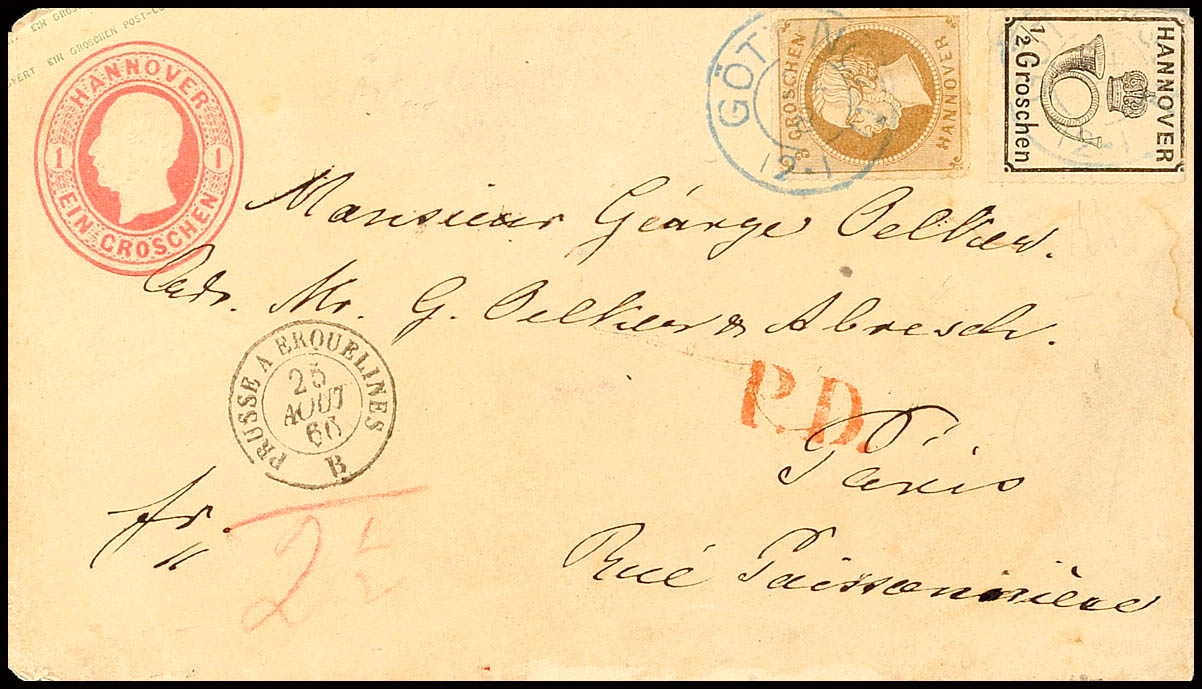 EIN GROSCHEN POST-CO
VERT EIN GROSCHEN POST-CO
HANNOVER
1 1
EIN GROSCHEN
GÖTTIN
3 GROSCHEN
HANNOVER
HANNOVER
1/2 Groschen
Monsieur Géorge Pelkier.
Adr. Mr. G. Pelkier & Abresch.
PRUSSE A ERQUELINES
25
AOUT
66
B
P.D.
Paris
fr.
2 1/2
Rué Poissonnière